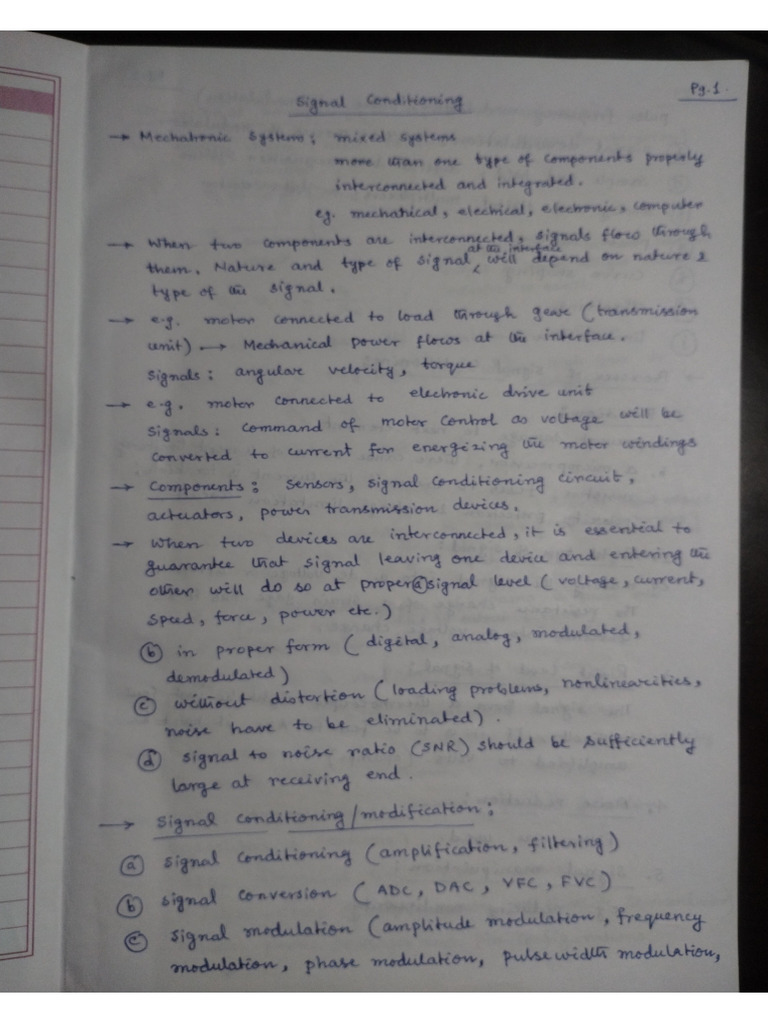 Pg.1.
Signal Conditioning
→ Mechatronic Systems: mixed systems
more than one type of components properly
interconnected and integrated.
eg. mechanical, electrical, electronic, computer
→ When two components are interconnected, signals flow through
them. Nature and type of signal at the interface will depend on nature &
type of the signal.
→ e.g. motor connected to load through gear (transmission
unit) → Mechanical power flows at the interface.
Signals: angular velocity, torque
→ e.g. motor connected to electronic drive unit
Signals: command of motor control as voltage will be
converted to current for energizing the motor windings
→ Components: sensors, signal conditioning circuit,
actuators, power transmission devices.
→ When two devices are interconnected, it is essential to
guarantee that signal leaving one device and entering the
other will do so at proper ⓐ signal level (voltage, current,
speed, force, power etc.)
ⓑ in proper form (digital, analog, modulated,
demodulated)
ⓒ without distortion (loading problems, nonlinearities,
noise have to be eliminated).
ⓓ signal to noise ratio (SNR) should be sufficiently
large at receiving end.
→ Signal conditioning/modification:
ⓐ signal conditioning (amplification, filtering)
ⓑ signal conversion (ADC, DAC, VFC, FVC)
ⓒ signal modulation (amplitude modulation, frequency
modulation, phase modulation, pulse width modulation,